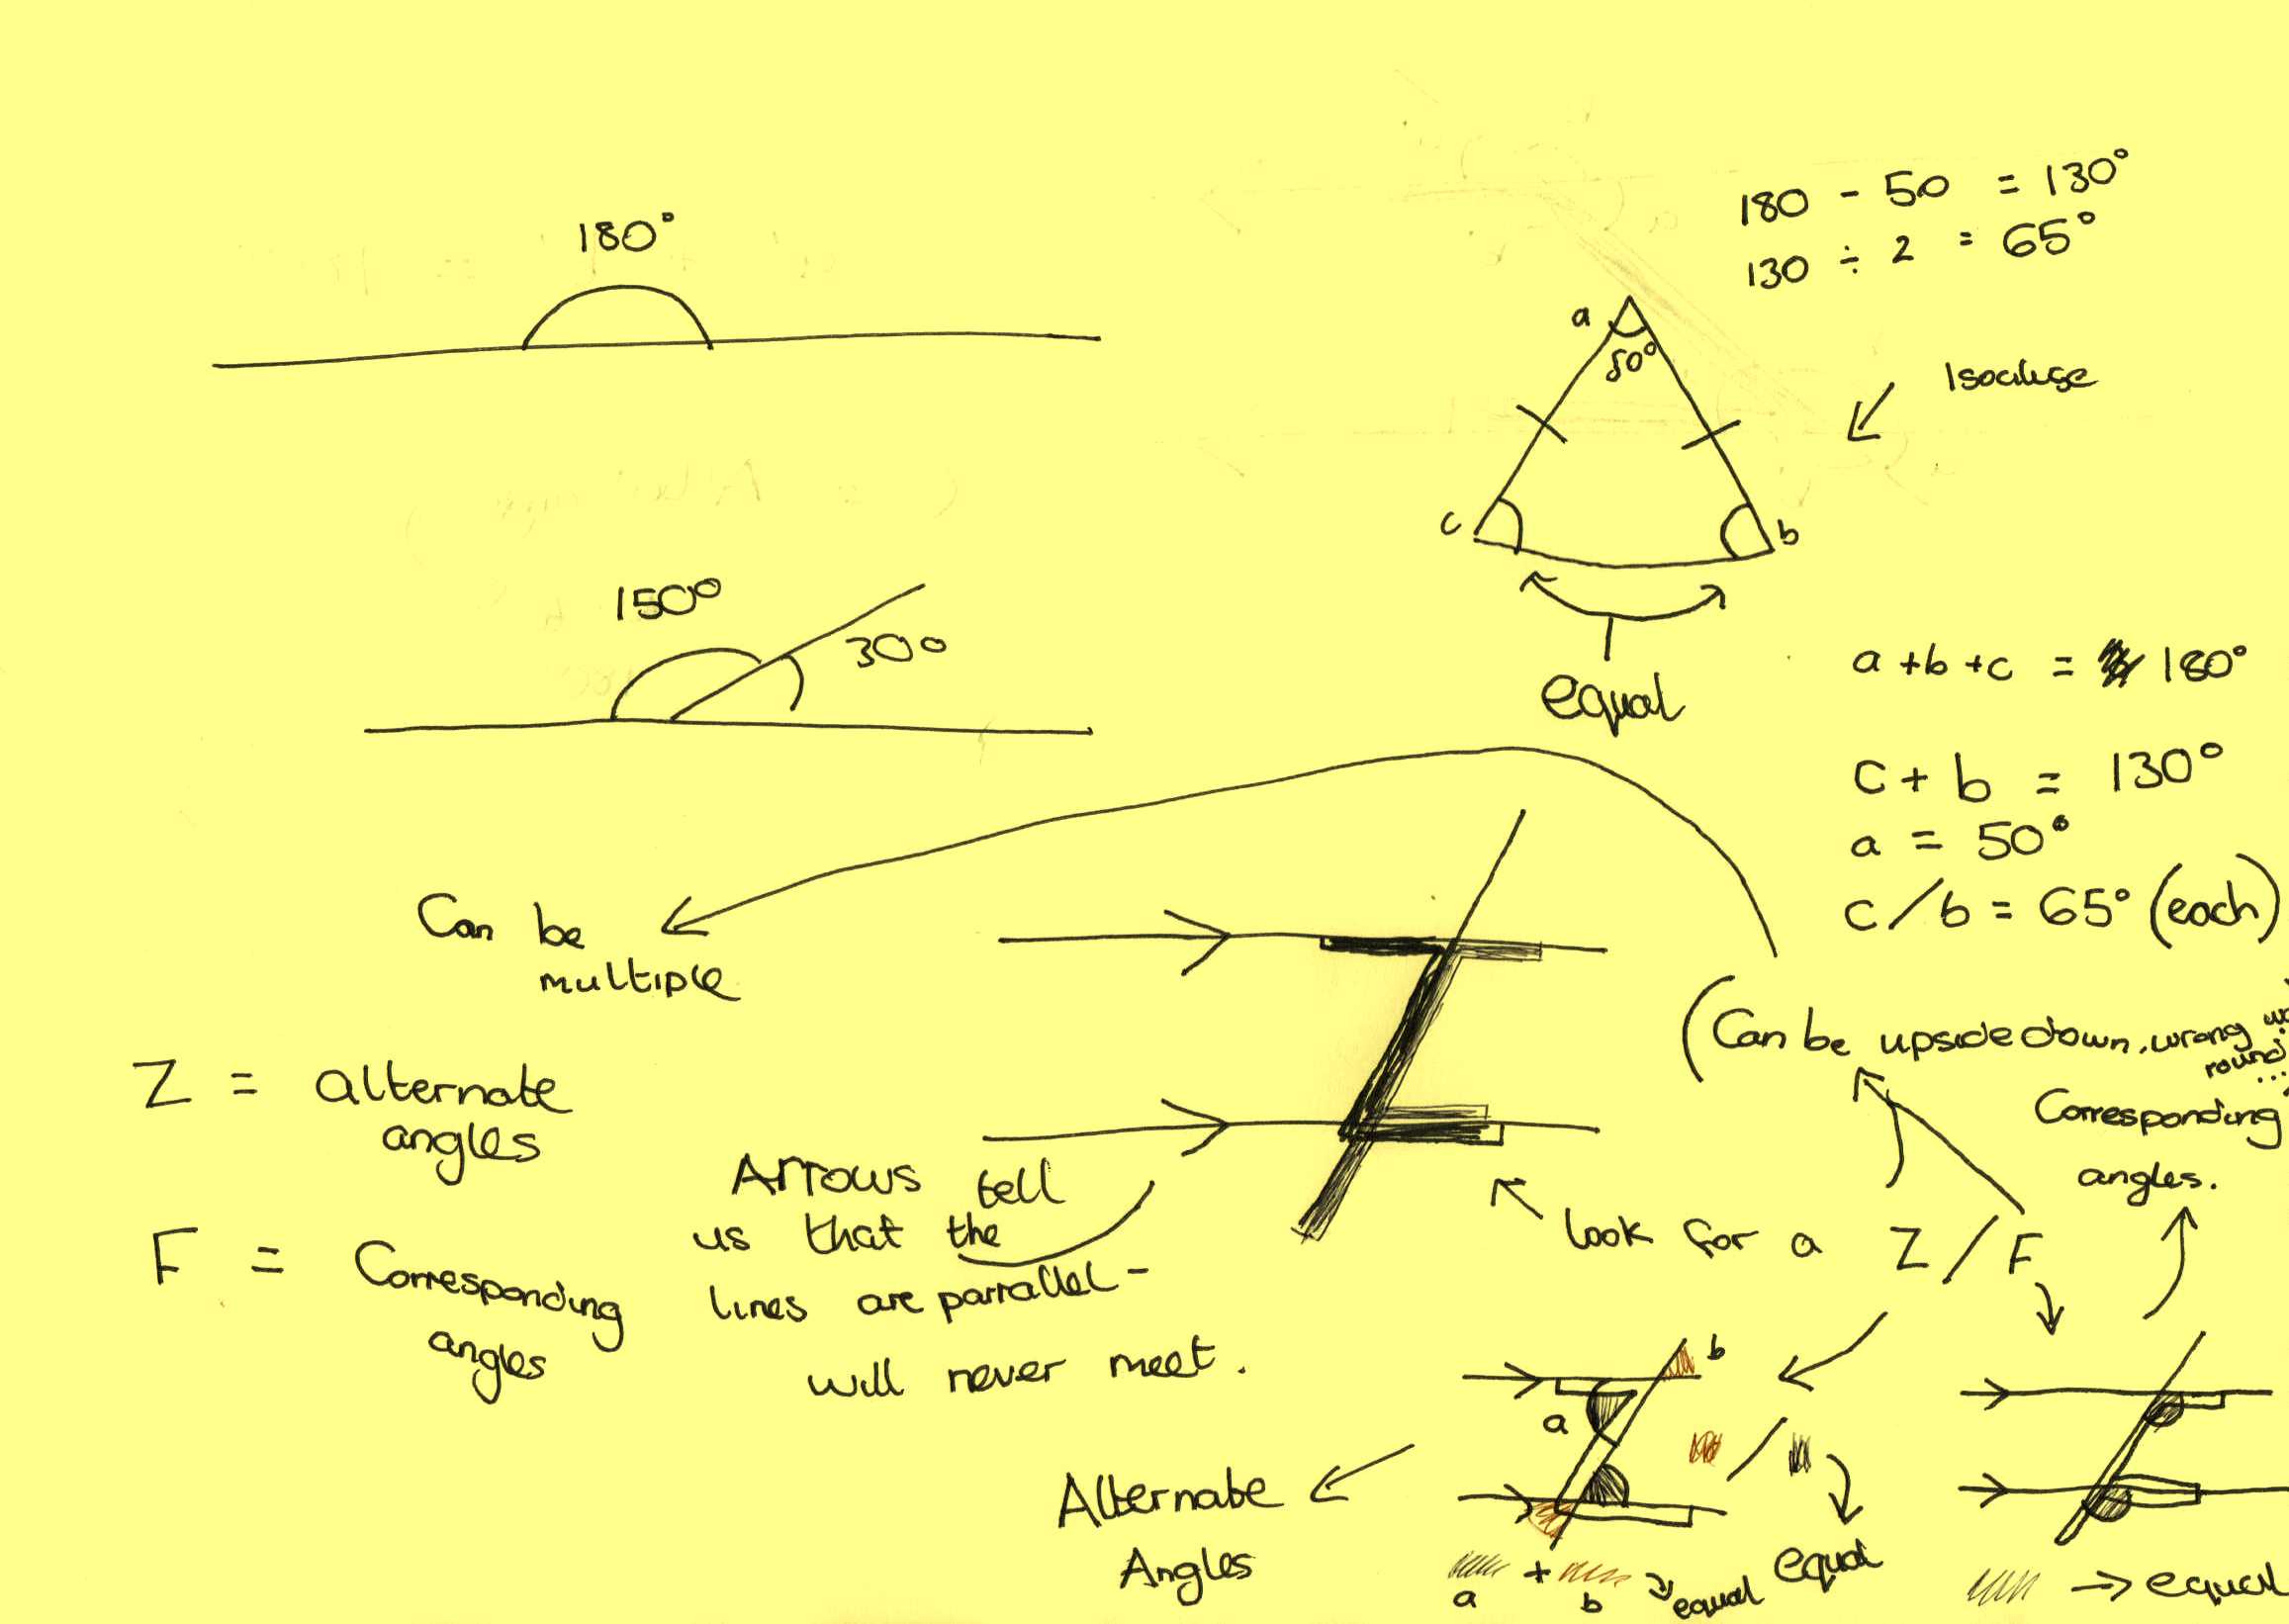 180°
180 - 50 = 130°
130 ÷ 2 = 65°
a
50°
Isoceluse
c
b
equal
150°
30°
a + b + c = 180°
c + b = 130°
a = 50°
c / b = 65° (each)
Can be
multiple
(Can be upside down, wrong
round
...
Z = alternate
angles
F = Corresponding
angles
Arrows tell
us that the
lines are parrallel -
will never meet.
look for a Z / F
Corresponding
angles.
Alternate
Angles
b
a
/
equal
a + b
equal
equal